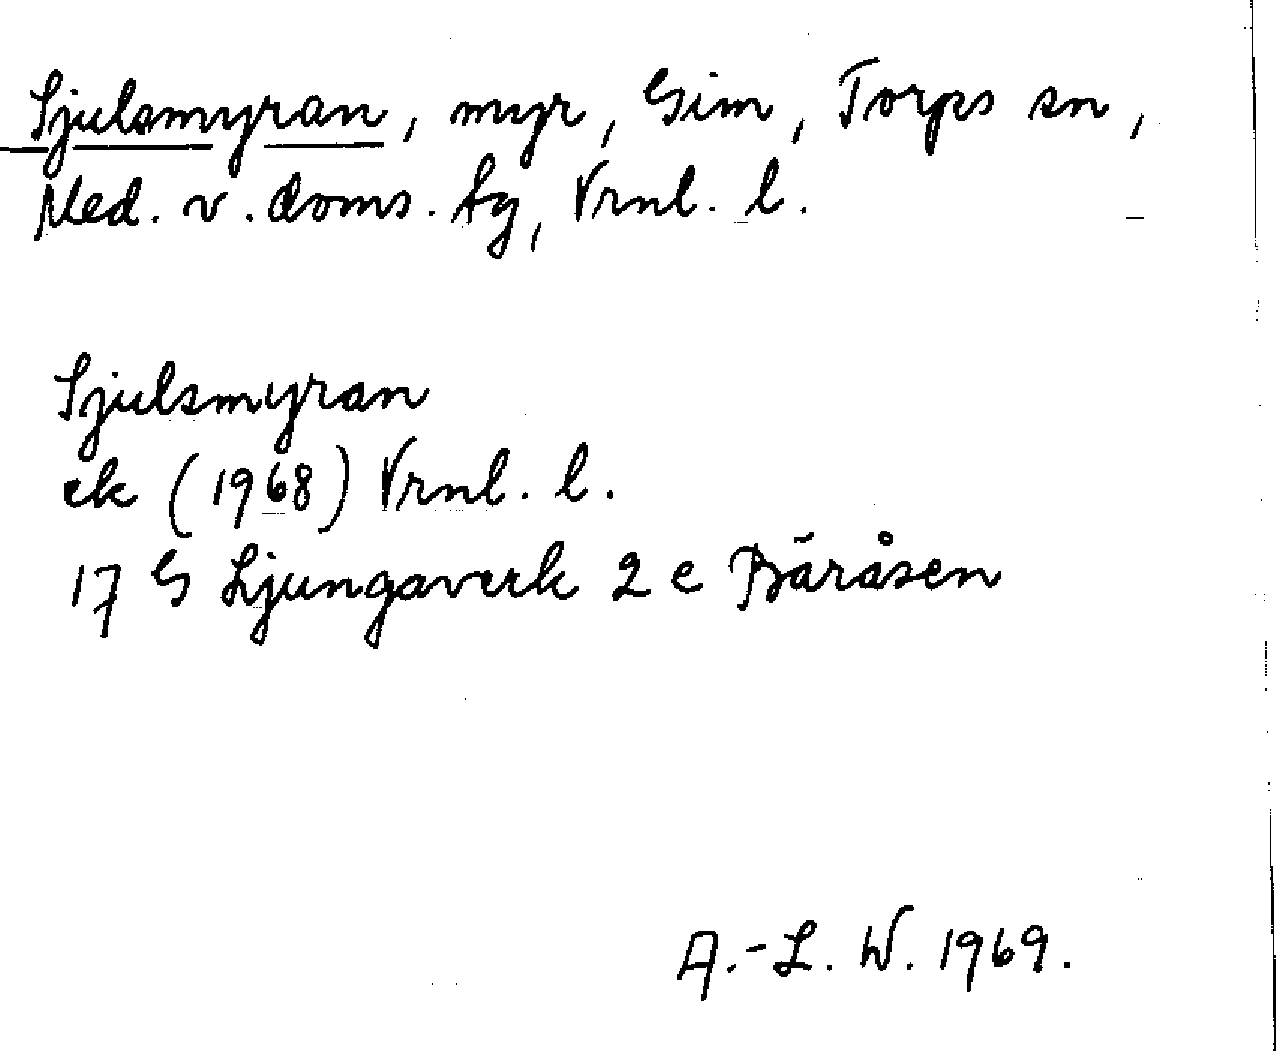 Sjulsmyran, myr, Gim, Torps sn,
Med. v. doms. fg, Vrnl. l.
Sjulsmyran
ek (1968) Vrnl. l.
17 G Ljungaverk 2 e Bäråsen
A.-L. W. 1969.